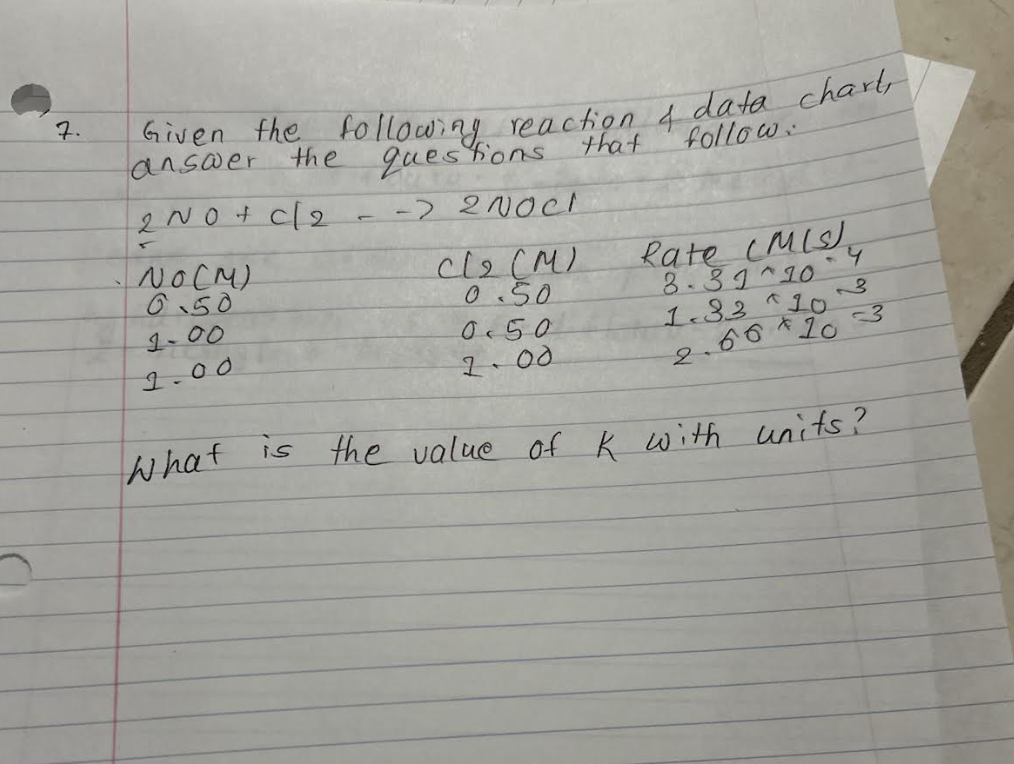 7. Given the following reaction & data chart,
answer the questions that follow:
2NO + Cl2 - -> 2NOCl
NO(M) Cl2 (M) Rate (M/S)
0.50 0.50 3.31 ^ 10 -4
1.00 0.50 1.33 ^ 10 -3
1.00 1.00 2.66 * 10 -3
What is the value of K with units?